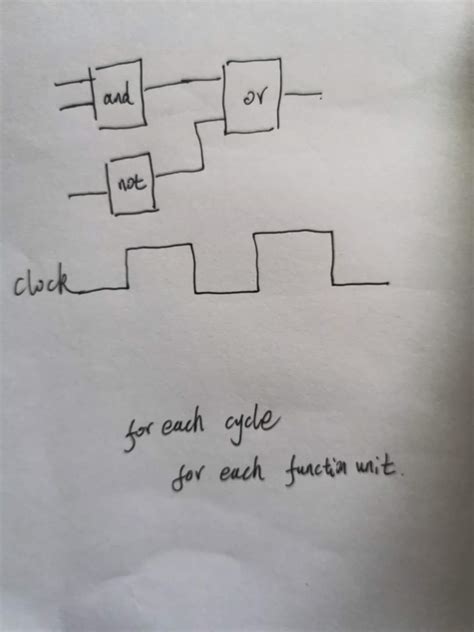 and
or
not
clock
for each cycle
for each function unit.